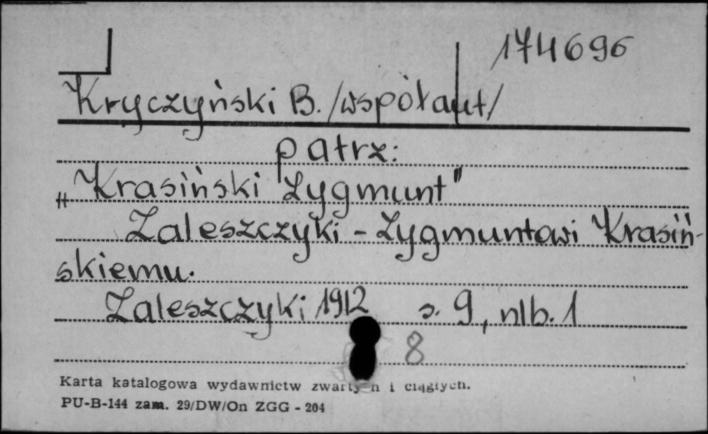 174696
Kryczyński B. /współaut/
patrz:
„Krasiński Zygmunt"
Zaleszczyki - Zygmuntowi Krasiń-
skiemu.
Zaleszczyki 1912 s. 9, nlb. 1
8
Karta katalogowa wydawnictw zwartych i ciągłych.
PU-B-144 zam. 29/DW/On ZGG - 204